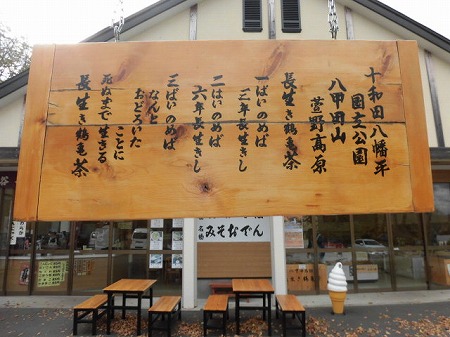 十和田八幡平
国立公園
八甲田山
萱野高原
長生き鶴亀茶
一ぱいのめば
三年長生きし
二はいのめば
六年長生きし
三ばいのめば
なんと
おどろいた
ことに
死ぬまで生きる
長生き鶴亀茶
名物
みそおでん